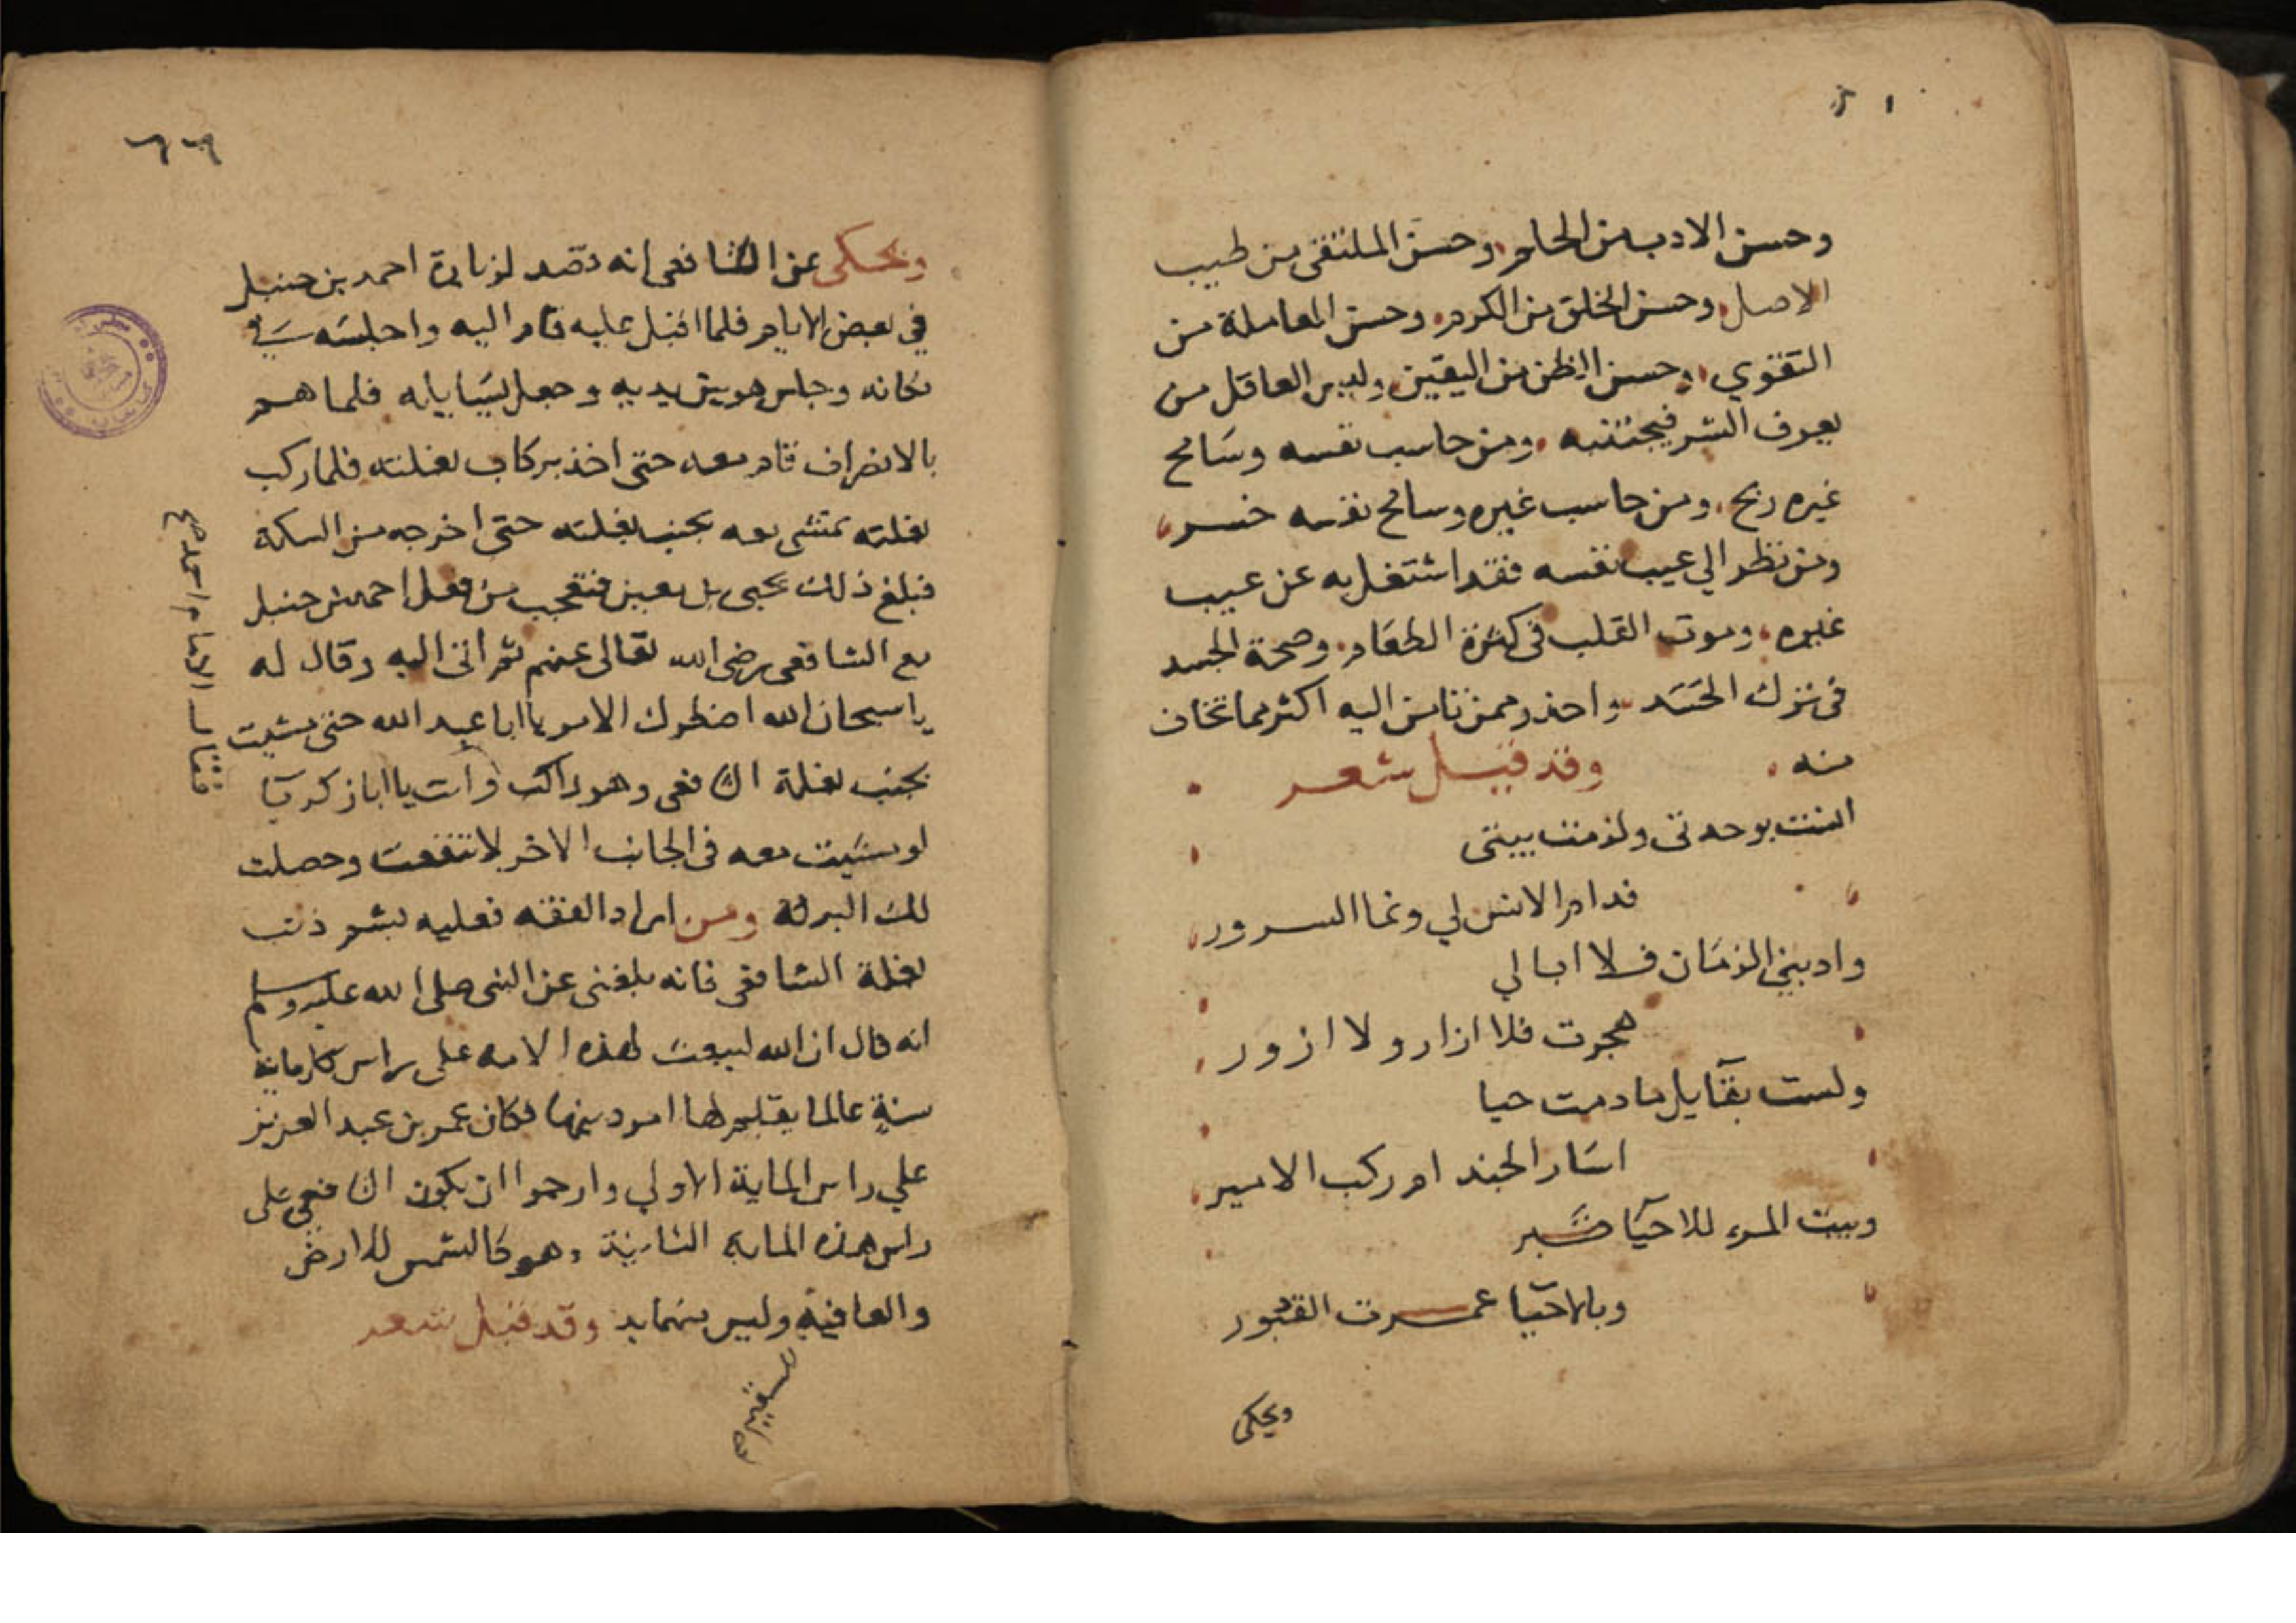 وحسن الادب من الحلم وحسن الملتقى من طيب
الاصل وحسن الخلق من الكرم وحسن المعاملة من
التقوي وحسن الظن من اليقين وليس العاقل من
يعرف الشر فيجتنبه ومن حاسب نفسه وسامح
غيره ربح ومن حاسب غيره وسامح نفسه خسر
ومن نظر الي عيب نفسه فقد اشتغل به عن عيب
غيره وموت القلب في كثرة الطعام وصحة الجسد
في ترك الحسد واحذر ممن تامن اليه اكثر مما تخاف
منه وقد قيل شعر
انست بوحدتي ولزمت بيتي
فدام الانس لي ونما السرور
وادبني الزمان فلا ابالي
هجرت فلا ازار ولا ازور
ولست بقايل ما دمت حيا
اسار الجند ام ركب الامير
وبيت المرء للاحيا
وبالاحيا عمرت القبور
ويحكى
٦٦
ويحكى عن الشافعي انه قصد لزيارة احمد بن حنبل
في بعض الايام فلما اقبل عليه قام اليه واجلسه في
مكانه وجلس هو بين يديه وجعل يسايله فلما هم
بالانصراف قام معه حتى اخذ بركاب بغلته فلما ركب
بغلته تمشى معه بجنب بغلته حتى اخرجه من السكة
فبلغ ذلك يحيى بن معين فتعجب من فعل احمد بن حنبل
مع الشافعي رضي الله تعالى عنهم ثم اتى اليه وقال له
يا سبحان الله اضطرك الامر يا ابا عبد الله حتى مشيت
بجنب بغلة الشافعي وهو راكب وانت يا ابا زكريا
لو مشيت معه في الجانب الاخر لانتفعت وحصلت
لك البركة ومن اراد الفقه فعليه بشم ذنب
بغلة الشافعي فانه بلغني عن النبي صلى الله عليه وسلم
انه قال ان الله ليبعث لهذه الامه على راس كل ماية
سنة عالما يقيم لها امر دينها فكان عمر بن عبد العزيز
علي راس الماية الاولي وارجوا ان يكون الشافعي على
راس هذه الماية الثانية وهو كالشمس للارض
والعافية وليس منهما بد وقد قيل شعر
فقال الامام احمد